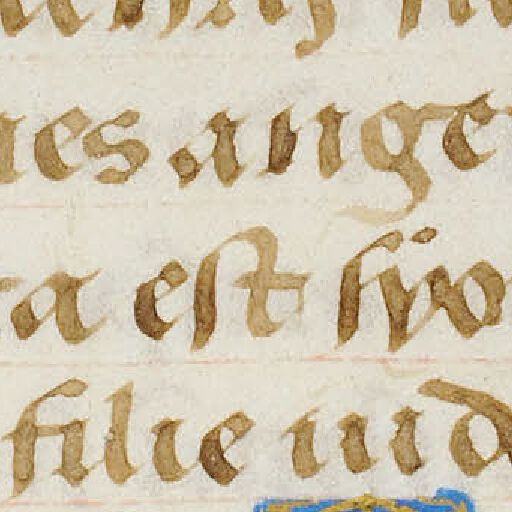 es ange
a est syo
filie iud